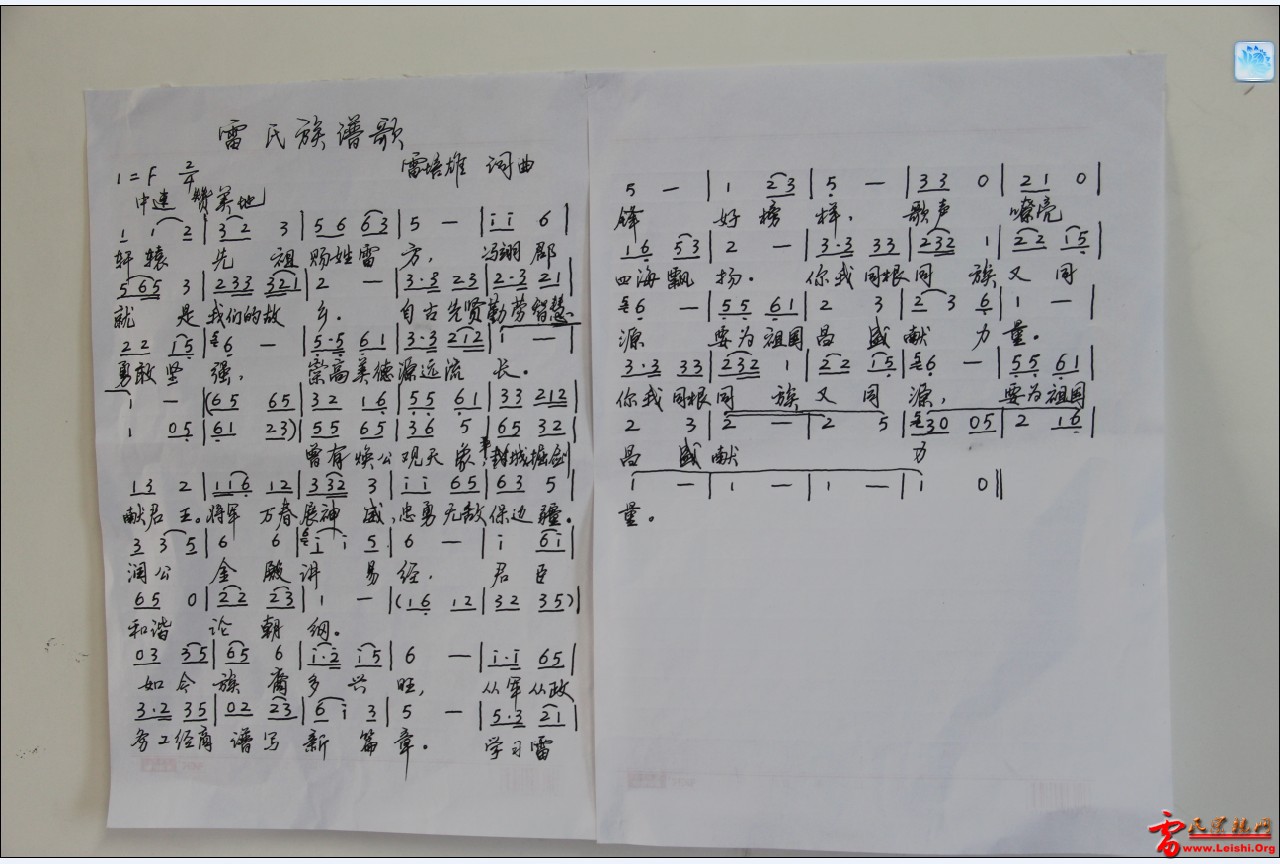 雷氏族谱歌
1=F 2/4
雷培雄 词曲
中速 赞美地
1 1 2 | 3 2 3 | 5 6 6 3 | 5 — | i i 6 |
轩辕 先 祖赐姓雷 方, 冯翊郡
5 65 3 | 2 33 321 | 2 — | 3·3 23 | 2·3 21 |
就 是我们的故 乡。 自古先贤勤劳智慧
22 15 | 6 — | 5·5 61 | 3·3 212 | 1 — |
勇敢坚 强, 崇高美德源远流 长。
1 — | (65 65 | 32 16 | 55 61 | 33 212 |
1 05 | 61 23) | 55 65 | 36 5 | 65 32 |
曾有焕公观天 象, 丰城掘剑
13 2 | 116 12 | 332 3 | i i 65 | 63 5 |
献君 王。将军 万春展神 威,忠勇无敌保边疆。
3 3 5 | 6 6 | i i 5 | 6 — | i 6i |
润公 金殿讲 易经, 君臣
65 0 | 22 23 | 1 — | (16 12 | 32 35) |
和谐 论 朝 纲。
03 35 | 65 6 | i·2 i5 | 6 — | i·i 65 |
如今 族 裔多 兴 旺, 从军从政
3·2 35 | 02 23 | 6 i 3 | 5 — | 5·3 21 |
务工经商 谱写 新 篇 章。 学习雷
5 — | 1 23 | 5 — | 33 0 | 21 0 |
锋 好 榜 样, 歌声 嘹亮
16 53 | 2 — | 3·3 33 | 232 1 | 22 15 |
四海飘 扬。 你我同根同 族 又 同
6 — | 55 61 | 2 3 | 2 3 6 | 1 — |
源 要为祖国昌 盛献 力 量。
3·3 33 | 232 1 | 22 15 | 6 — | 55 61 |
你我同根同 族 又 同 源, 要为祖国
2 3 | 2 — | 2 5 | 30 05 | 2 16 |
昌 盛献 力
i — | i — | i — | i 0 ||
量。
雷氏宗亲网
www.Leishi.Org